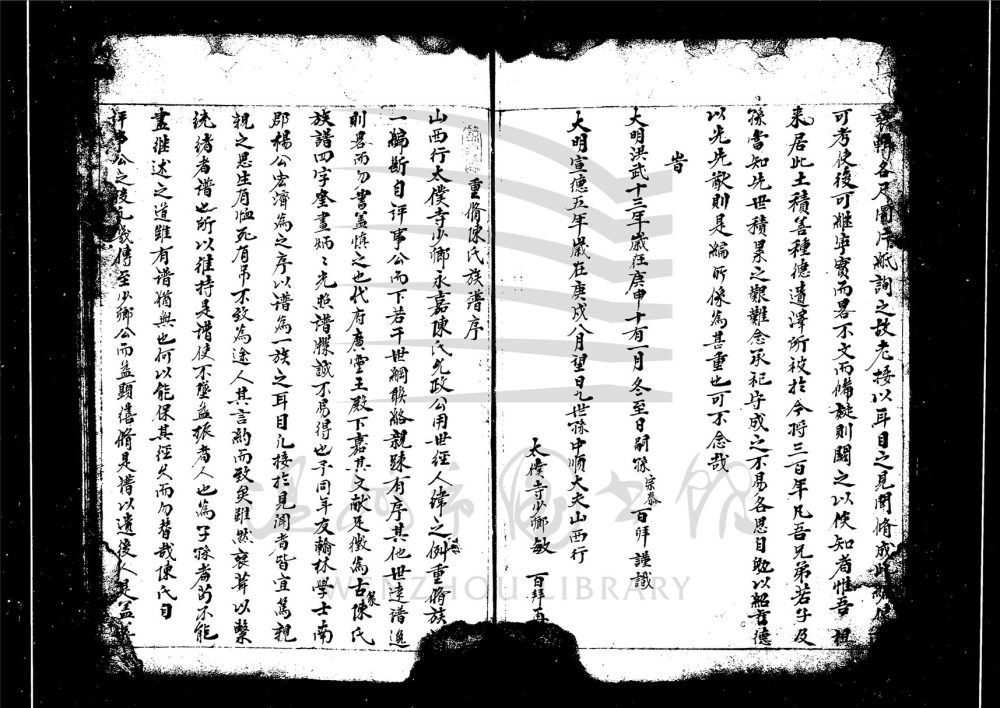 輯各尺圖序紙詢之故老接以耳目之見聞脩成此編
可考使後可繼事實而畧不文而備疑則闕之以俟知者惟吾祖
来居此土積善種德遺澤所被於今將三百年凡吾兄弟若子及
孫當知先世積累之艱難念承祀守成之不易各思自勉以紹前德
以光先猷則是編所係為甚重也可不念哉
旹
大明洪武十三年歲在庚申十有一月冬至日嗣孫宗泰百拜謹識
大明宣德五年歲在庚戌八月望日九世孫中順大夫山西行
太僕寺少卿敏 百拜
重脩陳氏族譜序
山西行太僕寺少卿永嘉陳氏允政公用世經人緯之例重脩族
一編斷自評事公而下若干世綱聯絡親踈有序其他世逺譜逸
則畧而勿書盖慎之也代府廣靈王殿下嘉其文献足徵為古陳氏
族譜四字奎畫炳〻光照譜牒誠不易得也予同年友翰林學士南
郡楊公宏濟為之序以譜為一族之耳目凡接於見聞者皆宜篤親
親之恩生有恤死有吊不致為途人其言約而致矣雖然裒萃以繫
統緒者譜也所以維持是譜使不墜益振者人也為子孫者苟不能
盡繼述之道雖有譜猶無也何以能保其經久而勿替哉陳氏自
評事公之後凡幾傳至少卿公而益顯僖脩是譜以遺後人是盖
WENZHOU LIBRARY